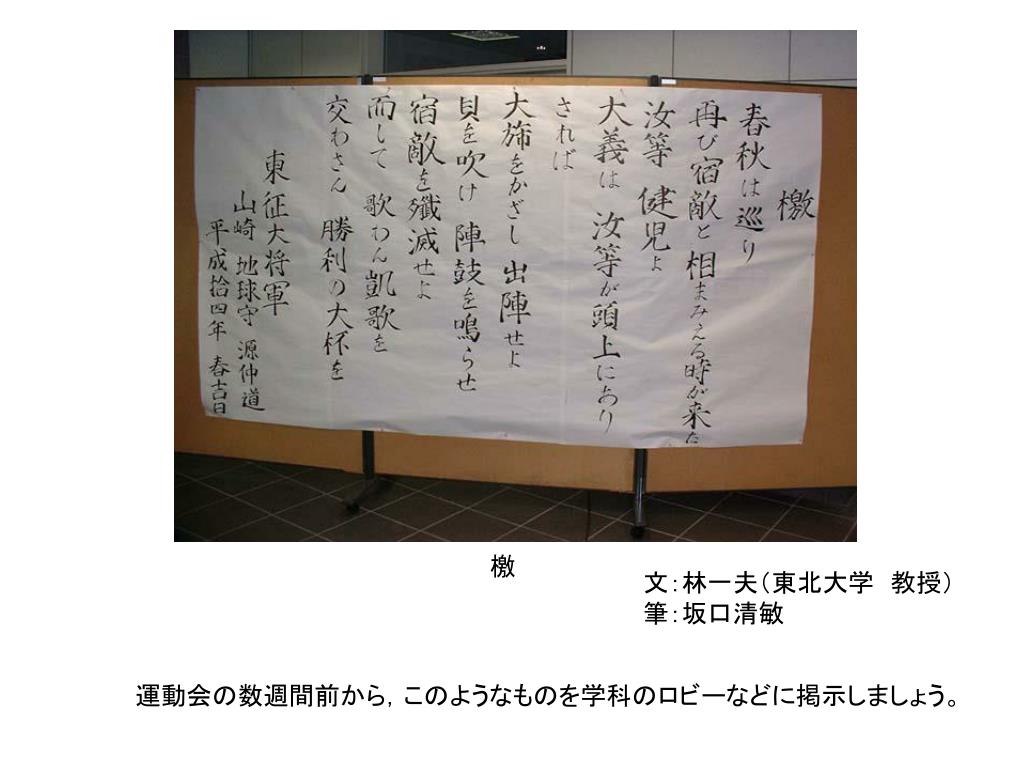 檄
春秋は巡り
再び宿敵と相まみえる時が来た
汝等 健児よ
大義は 汝等が頭上にあり
されば
大旆をかざし 出陣せよ
貝を吹け 陣鼓を鳴らせ
宿敵を殲滅せよ
而して 歌わん凱歌を
交わさん 勝利の大杯を
東征大将軍
山崎 地球守 源仲道
平成拾四年 春吉日
檄
文：林一夫（東北大学　教授）
筆：坂口清敏
運動会の数週間前から，このようなものを学科のロビーなどに掲示しましょう。